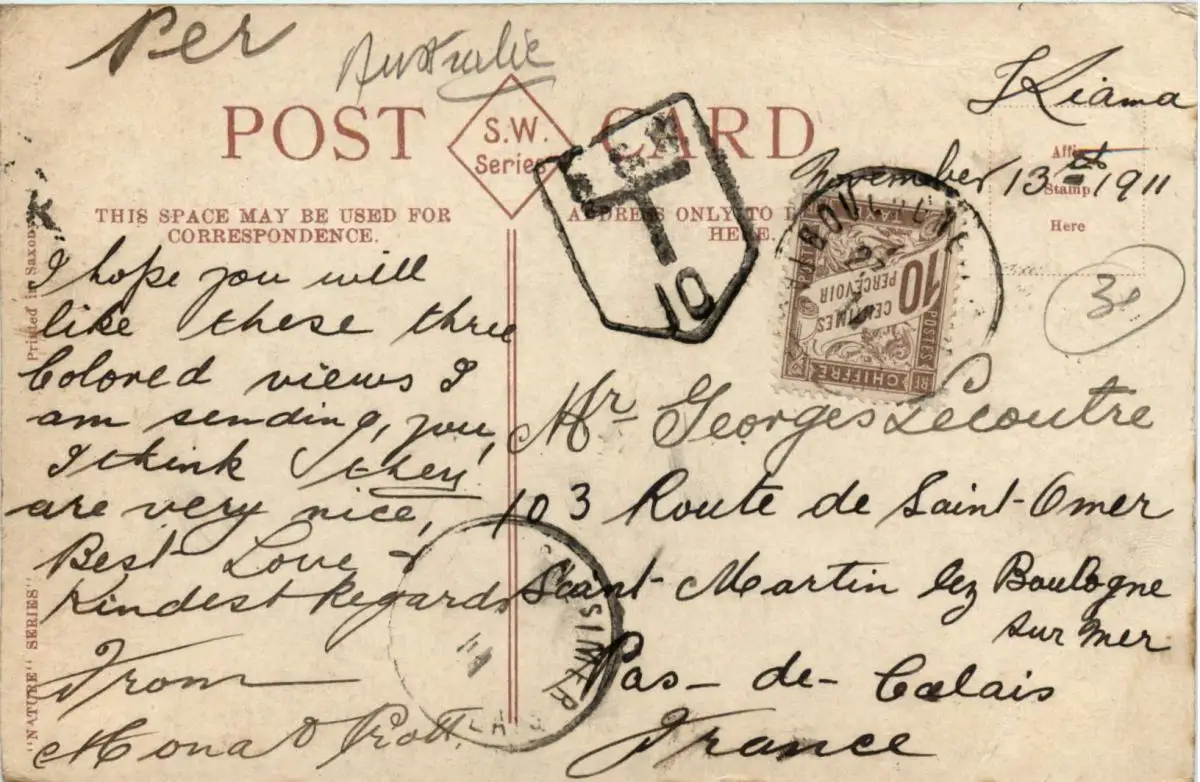 Per
Australie
Kiama
POST CARD
S.W.
Series
November 13th 1911
Affix
Stamp
Here
THIS SPACE MAY BE USED FOR
CORRESPONDENCE.
ADDRESS ONLY TO
HERE.
T
10
10
CENTIMES
PERCEVOIR
POSTES
CHIFFRE
30
I hope you will
like these three
Colored views I
am sending, you,
I think they
are very nice,
Best Love &
Kindest Regards
From
Mona
Mr Georges Lecoutre
103 Route de Saint-Omer
Saint-Martin lez Boulogne
sur mer
Pas-de-Calais
France
Printed in Saxony
"NATURE" SERIES